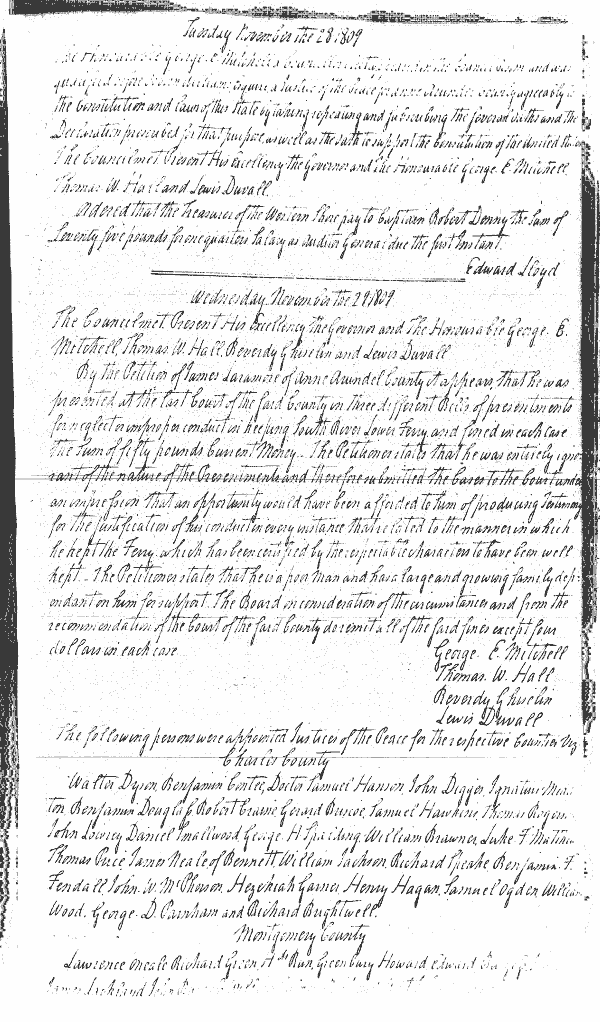 Tuesday November the 28 1809
The Honourable George E. Mitchell a Counsellor attended in the Council room and was
qualified before esquire, a Justice of the Peace for Anne Arundel County agreeably to
the Constitution and Laws of this State by taking repeating and subscribing the several oaths and the
Declaration prescribed for that purpose, as well as the oath to support the Constitution of the United States
The Council met Present His Excellency the Governor and The Honourable George. E. Mitchell,
Thomas. W. Hall and Lewis Duvall
Ordered that the Treasurer of the Western Shore pay to Captain Robert Denny the Sum of
Seventy five pounds for one quarters Salary as Auditor General due the first Instant.
Edward Lloyd
Wednesday November the 29 1809
The Council met Present His Excellency The Governor and The Honourable George. E.
Mitchell Thomas W. Hall, Reverdy Ghiselin and Lewis Duvall
By the Petition of James Laramore of Anne Arundel County it appears that he was
presented at the last Court of the said County in three different Bills of presentments
for neglect or improper conduct in keeping South River Lower Ferry and fined in each case
the Sum of fifty pounds Current Money. The Petitioner states that he was entirely igno
rant of the nature of the Presentments and therefore submitted the Cases to the Court under
an impression that an opportunity would have been afforded to him of producing Testimony
for the justification of his conduct in every instance that related to the manner in which
he kept the Ferry, which has been certified by the respectable characters to have been well
kept. The Petitioner states that he is a poor Man and has a large and growing family dep-
endant on him for support. The Board on consideration of the circumstances and from the
recommendation of the Court of the said County do remit all of the said fines except four
dollars in each case
George. E. Mitchell
Thomas. W. Hall
Reverdy Ghiselin
Lewis Duvall
The following persons were appointed Justices of the Peace for the respective Counties Viz
Charles County
Walter Dyson, Benjamin Contee, Doctor Samuel Hanson, John Digges, Ignatius
ton, Benjamin Douglass, Robert Crain, Gerard Briscoe, Samuel Hawkins, Thomas Rogers
John Lowrey Daniel Smallwood George. H Spalding, William Brawner, Luke F Matthews
Thomas Price James Neale of Bennett, William Jackson, Richard Speake Benjamin. F.
Fendall John. W. McPherson, Hezekiah Garner, Henry Hagan, Samuel Ogden William
Wood. George. D. Parnham and Richard Brightwell.
Montgomery County
Lawrence Oneale Richard Green, of Run, Greenbury Howard Edward
James Lackland John